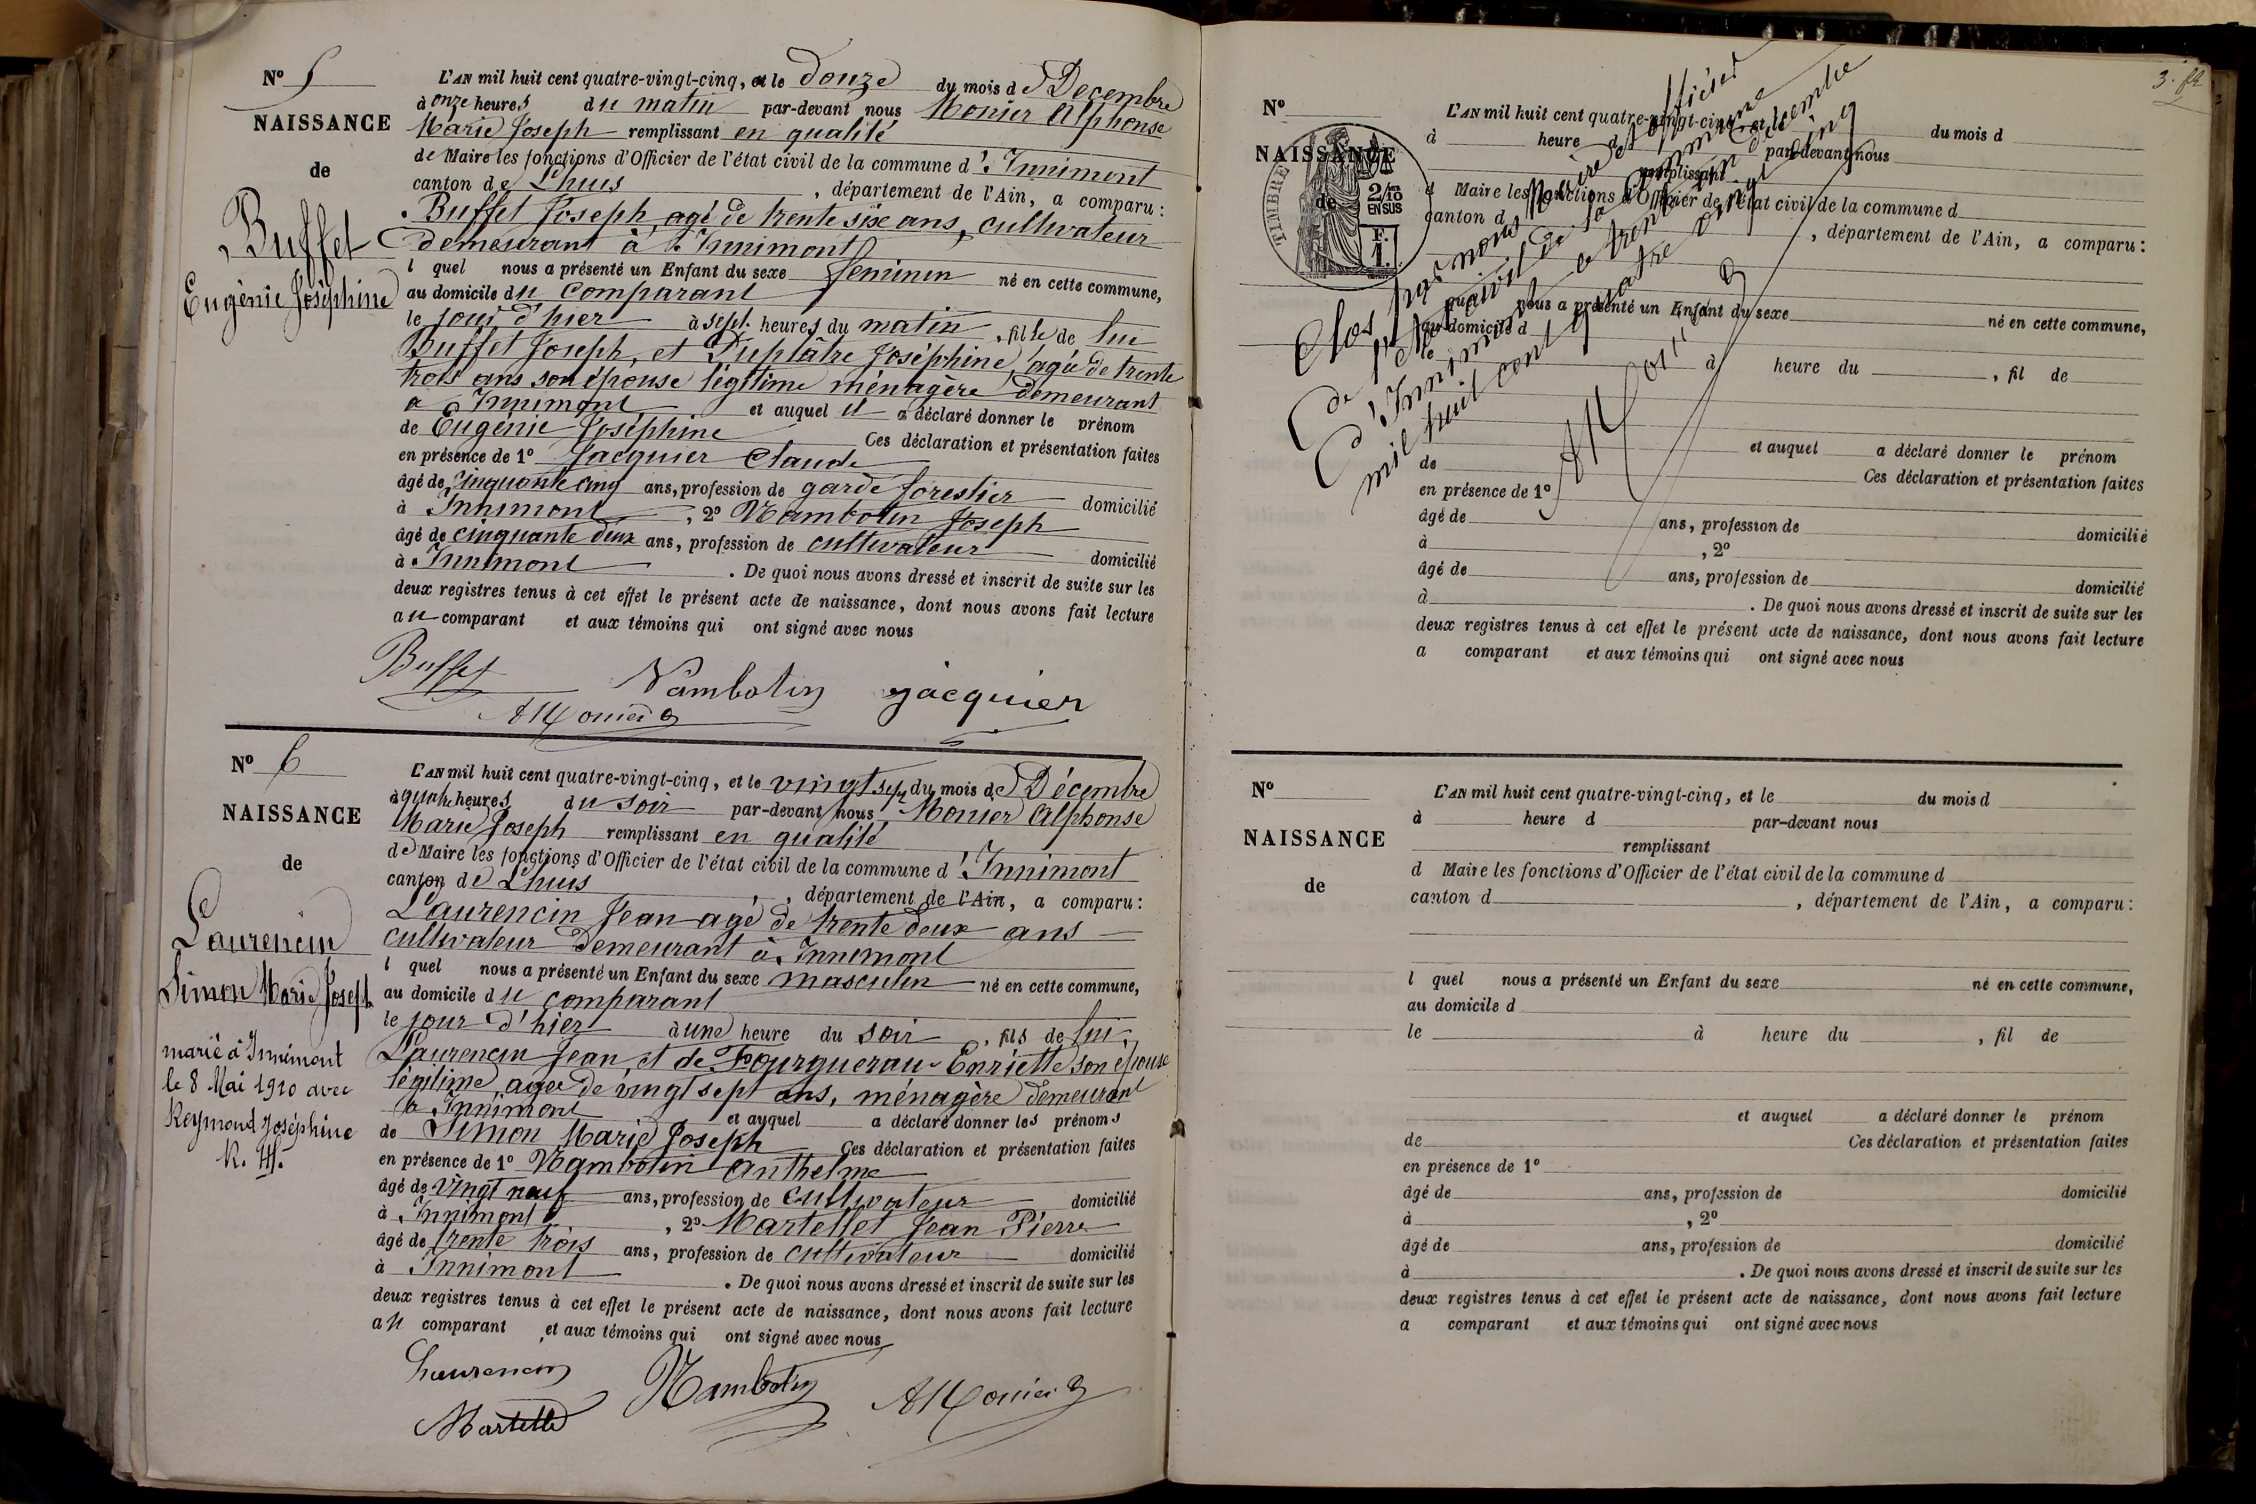 N° 5
NAISSANCE
de
Buffet
Eugènie Joséphine
L'AN mil huit cent quatre-vingt-cinq, et le douze du mois de Decembre
à onze heures du matin par-devant nous Monier Alphonse
Marie Joseph remplissant en qualité
de Maire les fonctions d'Officier de l'état civil de la commune d'Innimont
canton de Lhuis, département de l'Ain, a comparu:
Buffet Joseph, agé de trente six ans, cultivateur
demeurant à Innimont
l quel nous a présenté un Enfant du sexe feminin né en cette commune,
au domicile du comparant
le jour d'hier à sept heures du matin, fille de lui
Buffet Joseph, et Duplâtre Joséphine, agée de trente
trois ans son épouse légitime ménagère demeurant
a Innimont et auquel il a déclaré donner le prénom
de Eugénie Joséphine Ces déclaration et présentation faites
en présence de 1° Jacquier Claude
âgé de cinquante cinq ans, profession de garde forestier domicilié
à Innimont, 2° Nambotin Joseph
âgé de cinquante deux ans, profession de cultivateur domicilié
à Innimont. De quoi nous avons dressé et inscrit de suite sur les
deux registres tenus à cet effet le présent acte de naissance, dont nous avons fait lecture
au comparant et aux témoins qui ont signé avec nous
Buffet Nambotin Jacquier
A Monier
N° 6
NAISSANCE
de
Laurencin
Simon Marie Joseph
marié à Innimont
le 8 Mai 1910 avec
Reymond Joséphine
L'AN mil huit cent quatre-vingt-cinq, et le vingt sept du mois de Décembre
à quatre heures du soir par-devant nous Monier Alphonse
Marie Joseph remplissant en qualité
de Maire les fonctions d'Officier de l'état civil de la commune d'Innimont
canton de Lhuis, département de l'Ain, a comparu:
Laurencin Jean agé de trente deux ans
cultivateur demeurant à Innimont
l quel nous a présenté un Enfant du sexe masculin né en cette commune,
au domicile du comparant
le jour d'hier à une heure du soir, fils de lui,
Laurencin Jean, et de Fourguerau Enriette son épouse
légitime agée de vingt sept ans, ménagère demeurant
a Innimont et auquel a déclaré donner les prénoms
de Simon Marie Joseph Ces déclaration et présentation faites
en présence de 1° Nambotin Anthelme
âgé de vingt neuf ans, profession de cultivateur domicilié
à Innimont, 2° Martellet Jean Pierre
âgé de trente trois ans, profession de cultivateur domicilié
à Innimont. De quoi nous avons dressé et inscrit de suite sur les
deux registres tenus à cet effet le présent acte de naissance, dont nous avons fait lecture
au comparant et aux témoins qui ont signé avec nous
Laurencin Nambotin A Monier
Martellet
3.
N°
NAISSANCE
de
TIMBRE
2/10 EN SUS
F.
1.
Clos par nous Maire et officier
de l'état civil de la commune
d'Innimont ce trente un décembre
mil huit cent quatre vingt cinq
A Monier
L'AN mil huit cent quatre-vingt-cinq, et le du mois d
à heure d par-devant nous
remplissant
d Maire les fonctions d'Officier de l'état civil de la commune d
canton d, département de l'Ain, a comparu:
l quel nous a présenté un Enfant du sexe né en cette commune,
au domicile d
le à heure du, fil de
et auquel a déclaré donner le prénom
de Ces déclaration et présentation faites
en présence de 1°
âgé de ans, profession de domicilié
à, 2°
âgé de ans, profession de domicilié
à. De quoi nous avons dressé et inscrit de suite sur les
deux registres tenus à cet effet le présent acte de naissance, dont nous avons fait lecture
a comparant et aux témoins qui ont signé avec nous
N°
NAISSANCE
de
L'AN mil huit cent quatre-vingt-cinq, et le du mois d
à heure d par-devant nous
remplissant
d Maire les fonctions d'Officier de l'état civil de la commune d
canton d, département de l'Ain, a comparu:
l quel nous a présenté un Enfant du sexe né en cette commune,
au domicile d
le à heure du, fil de
et auquel a déclaré donner le prénom
de Ces déclaration et présentation faites
en présence de 1°
âgé de ans, profession de domicilié
à, 2°
âgé de ans, profession de domicilié
à. De quoi nous avons dressé et inscrit de suite sur les
deux registres tenus à cet effet le présent acte de naissance, dont nous avons fait lecture
a comparant et aux témoins qui ont signé avec nous